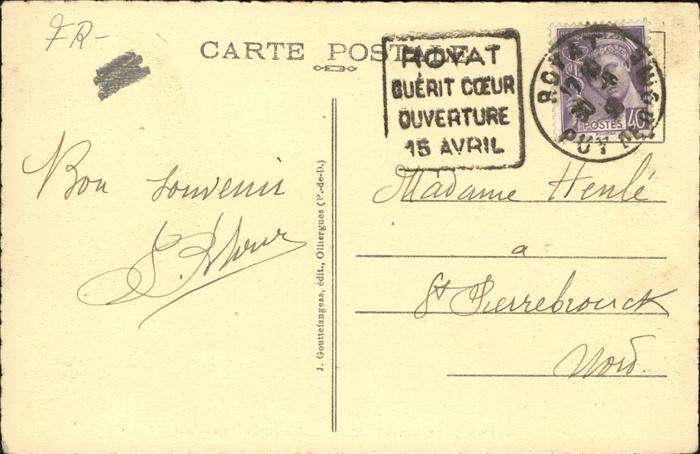 FR-
CARTE POSTALE
ROYAT
GUÉRIT CŒUR
OUVERTURE
15 AVRIL
ROYAT
PUY DE DÔME
POSTES
40c
Bon souvenir
J. Gouttefangeas, édit., Olliergues (P.-de-D.)
Madame Henlé
a
St Pierrebrouck
Nord.